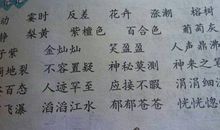 动 霎时 反差 花卉 涨潮 榕树
静 梨黄 紫檀色 百合色 葡萄灰
紫 金灿灿 笑盈盈 人声鼎沸
地裂 不容置疑 神秘莫测 神来之笔
百态 人迹罕至 应接不暇 涓涓细
瀑 滔滔江水 郁郁苍苍 恍恍惚